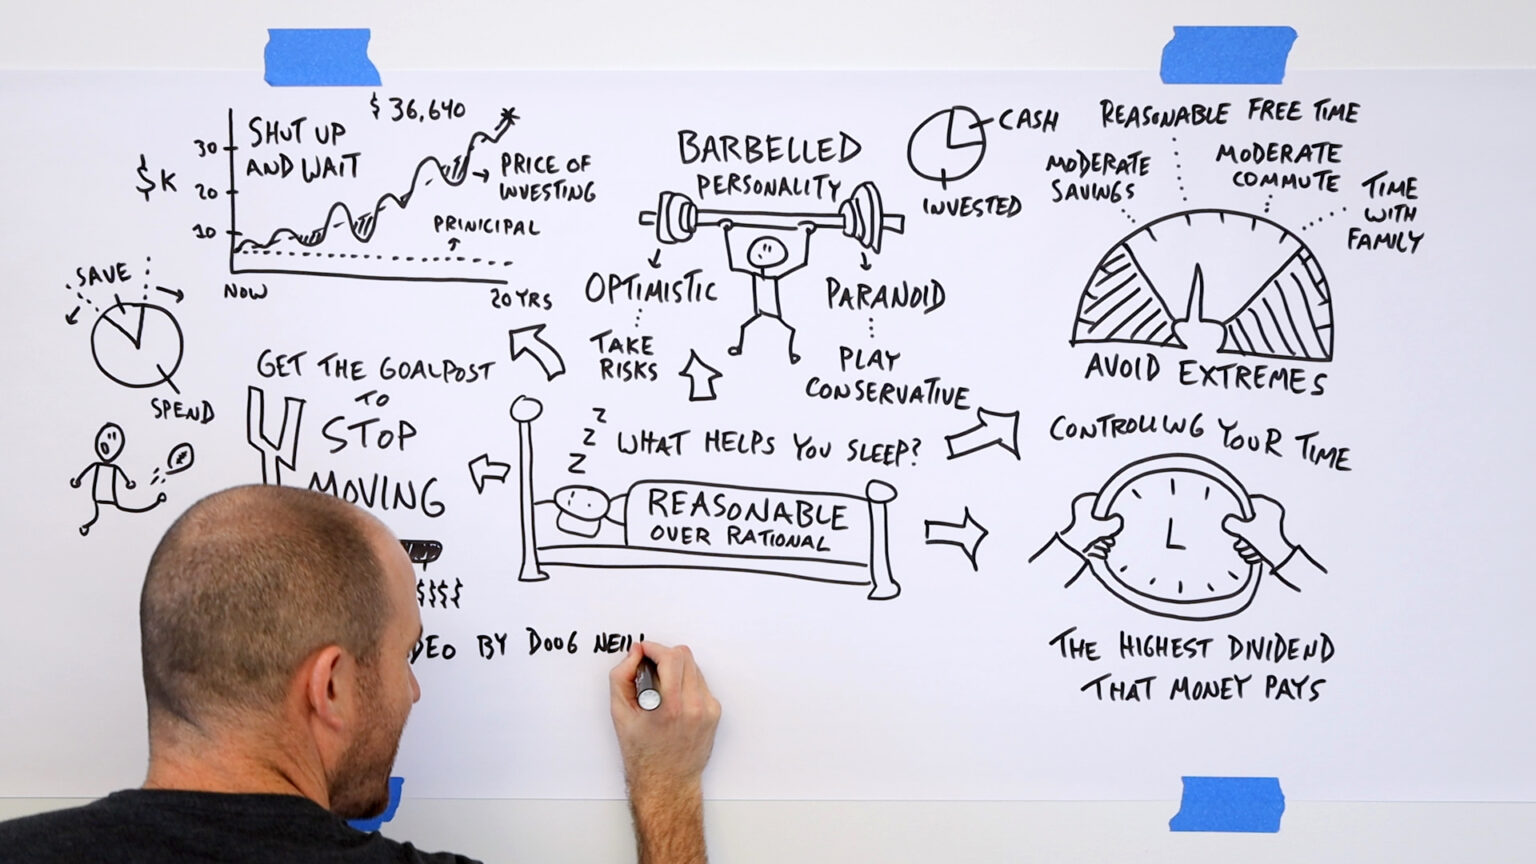 $ 36,640
SHUT UP
AND WAIT
$K
30
20
10
PRICE OF
INVESTING
PRINICIPAL
NOW
20 YRS
SAVE
SPEND
GET THE GOALPOST
TO
STOP
MOVING
$$$$
BARBELLED
PERSONALITY
OPTIMISTIC
TAKE
RISKS
PARANOID
PLAY
CONSERVATIVE
CASH
INVESTED
REASONABLE FREE TIME
MODERATE
SAVINGS
MODERATE
COMMUTE
TIME
WITH
FAMILY
AVOID EXTREMES
Z
Z
Z
WHAT HELPS YOU SLEEP?
REASONABLE
OVER RATIONAL
CONTROLLING YOUR TIME
THE HIGHEST DIVIDEND
THAT MONEY PAYS
DEO BY DOUG NEIL